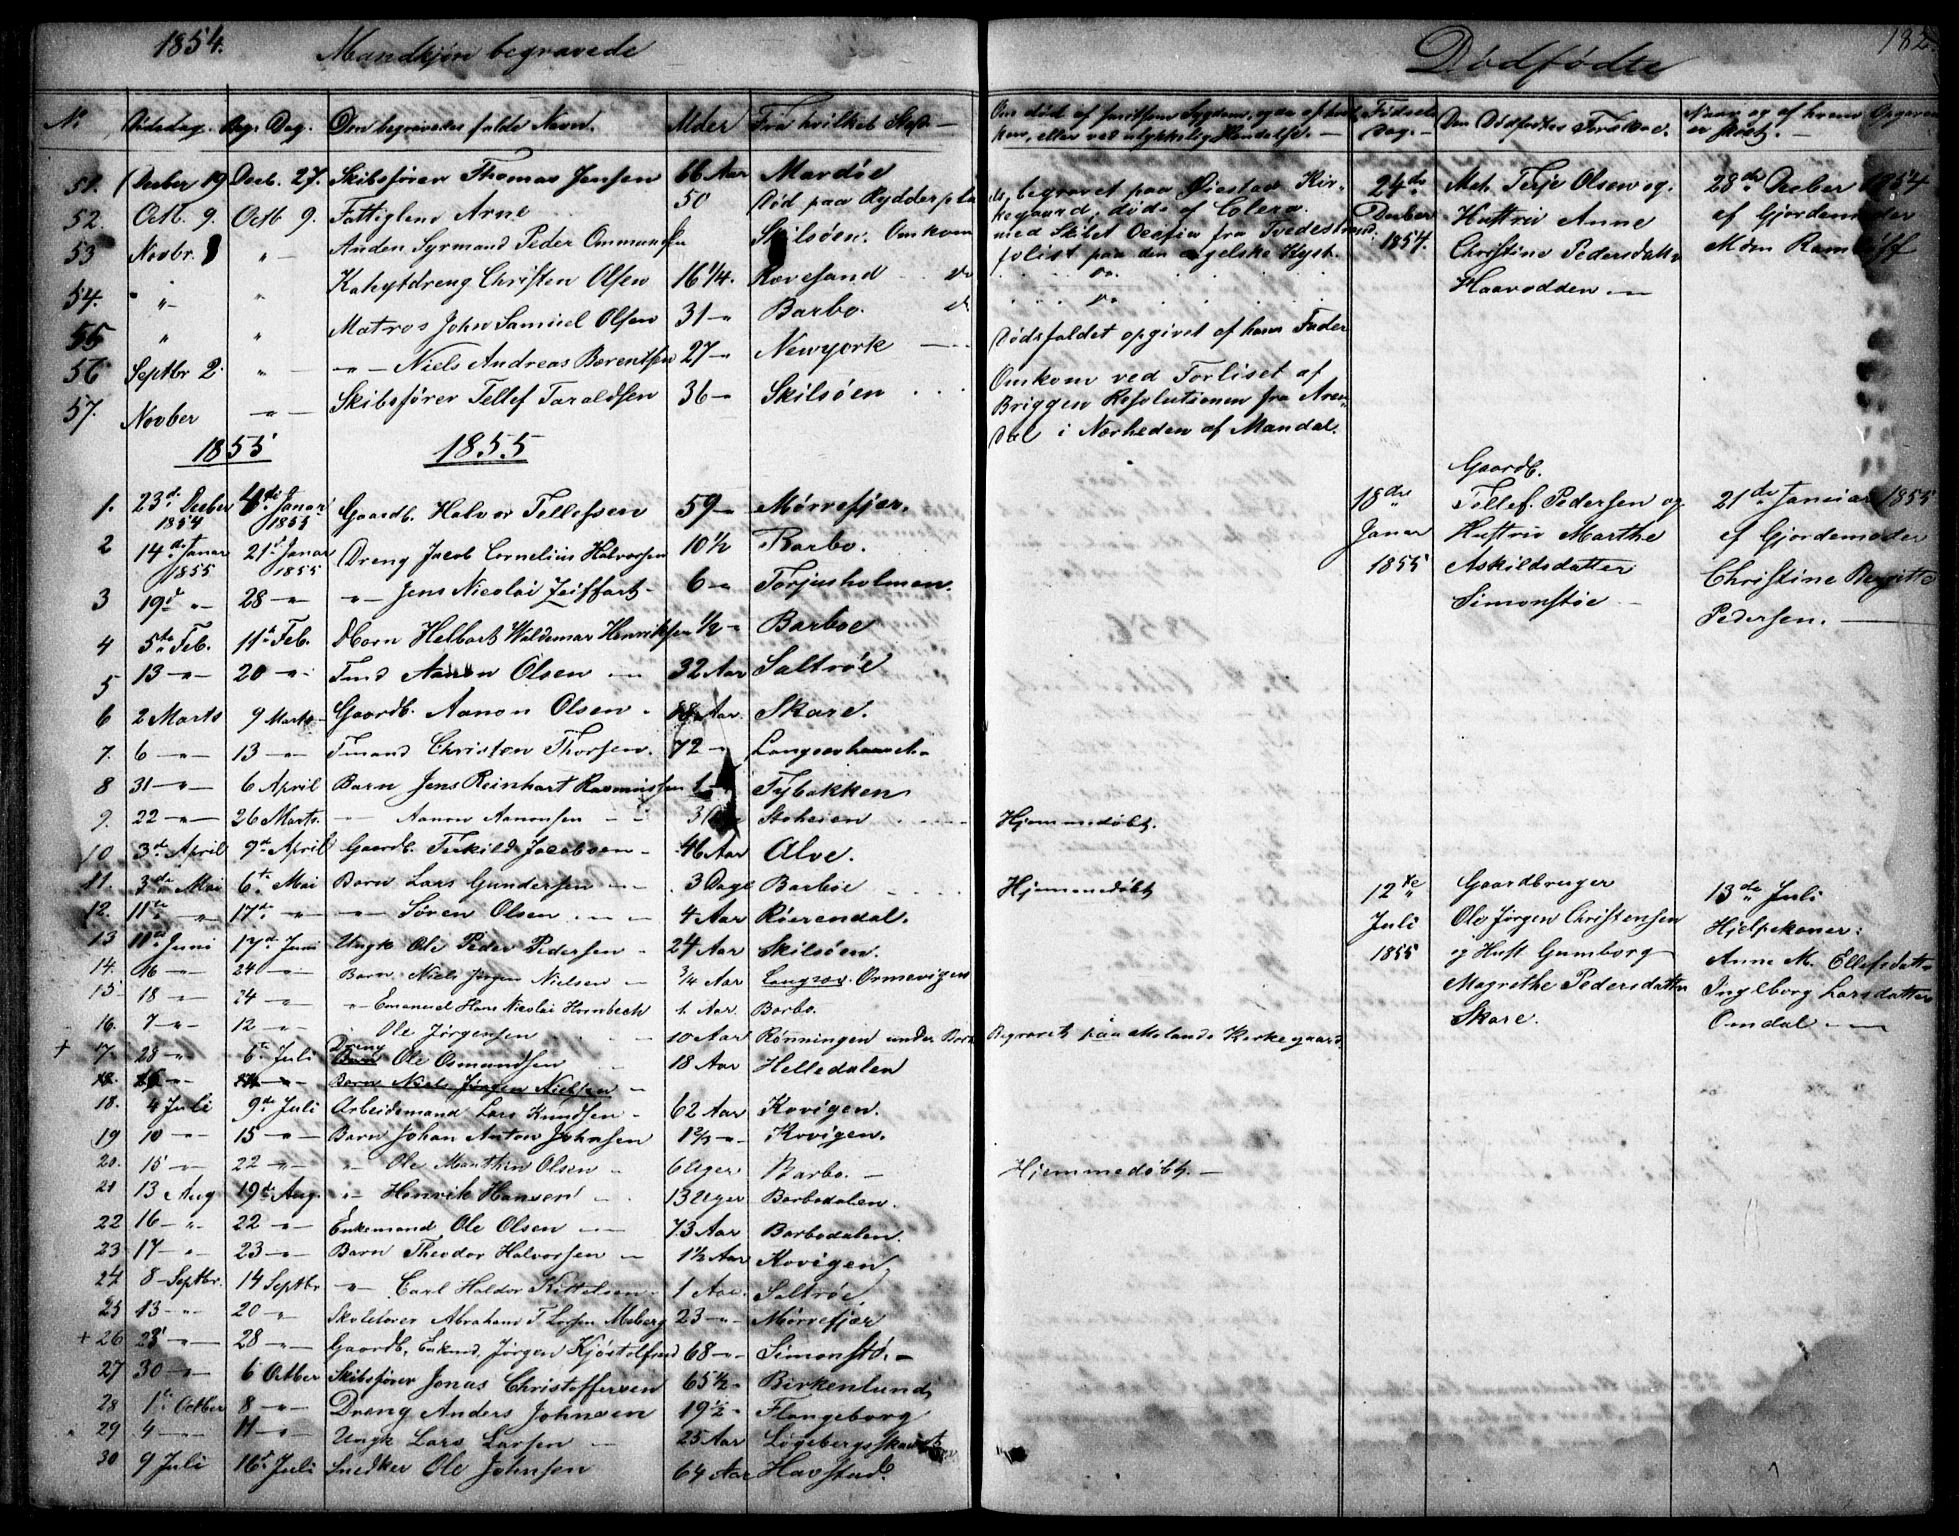 1854. Mandkjøn begravede
No Dødsdag. Begr. Dag. Den begravedes fulde Navn. Alder Fra hvilket Sted
51. Decber 19 Decb. 27. Skibsfører Thomas Jensen 66 Aar Mardöe
52. Octb. 9. Octb 9. Fattiglem Arne 50 Död paa
53 Novbr. 8 " Anden Syrmand Peder Ommundsen Skilsöen. Omkom
54. " " Kahytdreng Christen Olsen 16 1/4. Rovesand do
55 " " Matros John Samuel Olsen 31 " Barbo. do
56 Septbr 2. " " Niels Andreas Berentsen 27 " Newyork
57. Novber " Skibsfører Tellef Taraldsen 36 " Skilsöen
1855 1855
1. 23de Decber 1854 4de Januar 1855 Gaardb. Halvor Tellefsen 59 " Mörrefjær.
2 14de Januar 1855 21de Januar 1855 Dreng Jacob Cornelius Halvorsen 10 1/2 Barbo.
3 19de " 28 " " Jens Nicolai Zeiffart 6 " Torjusholmen.
4 5te Feb. 11te Feb. Barn Helbart Waldemar Henriksen 1/2 " Barboe
5 13 " 20 " Tmd Aanon Olsen 32 Aar Saltröe
6 2 Marts 9 Marts Gaardb. Aanon Olsen Aar. Skare.
7. 6 " 13 " Tmand Christen Thorsen. 72 "
8 31 " 6 April Barn Jens Reinhart Rasmussen 1 Tybakken
9. 22 " 26 Marts. " Aanon Aanonsen Stoheien
10 3de April 9de April Gaardb. Terkild Jacobsen 46 Aar Alve.
11. 3de Mai 6te Mai Barn Lars Gundersen 3 Dage Barboe
12. 11te " 17de " " Søren Olsen 4 Aar Röierendal.
13 11te Juni 17de Juni Ungk Ole Peder Pedersen 24 Aar Skilsöen.
14. 16 " 24 " Barn Niels Jørgen Nielsen 3/4 Aar Langsæ. Ormevigen
15 18 " 24 " " Emanuel Hans Nicolai Hornbech 1 Aar. Barbo.
16. 7 " 12 " " Ole Jørgensen 10 Aar Rønningen under
+ 17. 28 " 6te Juli Dreng Barn Ole Osmundsen 18 Aar Helledalen
Barn Niels Jørgen Nielsen
18. 4 Juli 9de Juli Arbeidsmand Lars Knudsen 62 Aar Kovigen.
19 10 " 15 " Barn Johan Anton Johnsen 1 2/3 " Kovigen.
20. 15 " 22 " " Ole Marthin Olsen 6 Uger Barbo.
21 13 Aug 19de Aug. " Henrik Hansen 13 Uger Barbodalen.
22 16 " 22 " Enkemand Ole Olsen 73 Aar Barbodalen.
23 17 " 23 " Barn Theodor Halvorsen 1 1/2 Aar Kovigen
24 8 Septbr. 14 Septbr " Carl Haldor Kittelsen 1 Aar. Saltröe
25 13 " 20 " Skolelærer Abraham T Larsen Moberg 23 " Mörrefjær
+ 26 23 " 28 " Gaardb. Enkmd. Jørgen Kjöstolfsen 68 " Simonstö.
27 30 " 6 Octber Skibsfører Jonas Christoffersen 65 1/2 Birkenlund
28 1te Octber 8 " Dreng Anders Johnsen 19 1/2 Flangeborg
29 4 " 11 " Ungk Lars Larsen 25 Aar
30 9 Juli 16de Juli Snedker Ole Johnsen 64 Aar Havstad
182.
Dødfødte
Fødsels Dag. Den Dødfødtes Forældre. Naar og af hvem Opgaven er skeet.
begravet paa Øiestad Kirkegaard, døde af Colera.
med Skibet fra Tvedestrand
forlist paa den engelske Kyst.
do
do
Dödsfaldet opgivet af hans Fader
Omkom ved Forliset af
Briggen Resolutionen fra Arendal i Nærheden af Mandal.
24de Decber 1854. Mat. Terje Olsen og
Hustru Anne
Christine Pedersdatter
Haavodden
28de Decber 1854
af Gjordemoder
Mdm
18de Januar 1855 Gaardb.
Tellef Pedersen og
Hustru Marthe
Askildsdatter
Simonstöe
21de Januar 1855
af Gjordemoder
Christine Birgitte
Pedersen.
Hjemmedöbt.
Hjemmedöbt
12te Juli 1855 Gaardbruger
Ole Jørgen Christensen
og Hust Gunborg
Magrethe Pedersdatter
Skare.
13de Juli
Hjelpekoner:
Anne M. Ellefsdatter
Ingeborg Larsdatter
Omdal
Begravet paa Molands Kirkegaard
Hjemmedöbt.